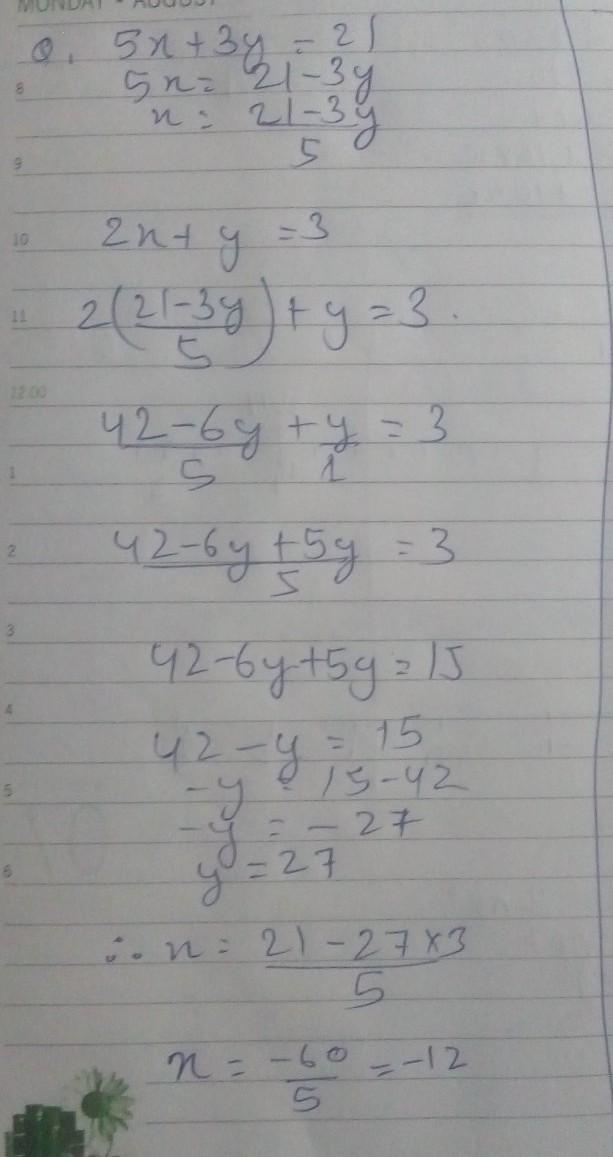 MONDAY - AUGUST
Q. 5x + 3y = 21
8
5x = 21 - 3y
x = 21 - 3y
5
9
10
2x + y = 3
11
2(21 - 3y / 5) + y = 3.
12.00
42 - 6y / 5 + y / 1 = 3
1
2
42 - 6y + 5y / 5 = 3
3
42 - 6y + 5y = 15
4
42 - y = 15
5
-y = 15 - 42
-y = - 27
6
y = 27
∴ x = 21 - 27 × 3 / 5
x = -60 / 5 = -12